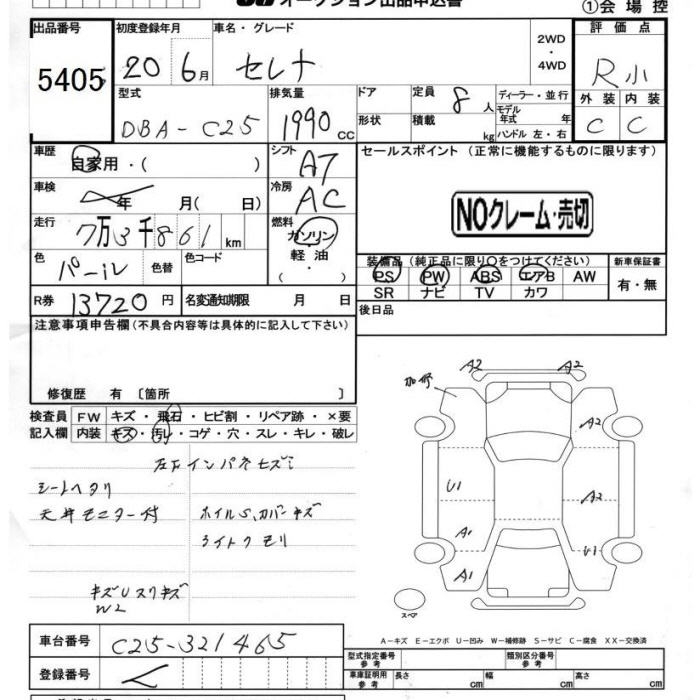 オークション出品申込書
①会場控
出品番号 5405
初度登録年月 20 6月
車名・グレード セレナ
2WD・4WD
評価点 R小
外装 C 内装 C
型式 DBA-C25
排気量 1990 CC
ドア
形状
定員 8人
積載 kg
ディーラー・並行
モデル年式 年
ハンドル 左・右
車歴 自家用・( )
シフト AT
セールスポイント (正常に機能するものに限ります)
車検 年 月( 日)
冷房 AC
NOクレーム・売切
走行 7万3千861km
燃料 ガソリン・軽油・( )
色 パール 色替
色コード
装備品(純正品に限り〇をつけてください)
PS PW ABS エアB AW
SR ナビ TV カワ
新車保証書 有・無
R券 13720円
名変通知期限 月 日
後日品
注意事項申告欄(不具合内容等は具体的に記入して下さい)
修復歴 有〔箇所 〕
検査員記入欄
FW キズ・飛石・ヒビ割・リペア跡・×要
内装 キズ・汚レ・コゲ・穴・スレ・キレ・破レ
シートヘタリ
天井モニター付
ホイルS,カバーキズ
ライトクモリ
加修
A2 A2
A2
U1 A2
A1 U1
A1
スペア
A-キズ E-エクボ U-凹み W-補修跡 S-サビ C-腐食 XX-交換済
車台番号 C25-321465
登録番号
型式指定番号 参考
類別区分番号 参考
車庫証明用 参考 長さ cm 幅 cm 高さ cm